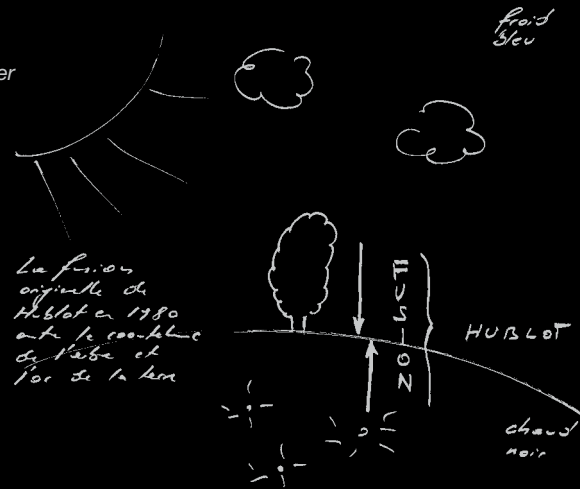 froid
bleu
er
La fusion
originelle de
Hublot en 1980
entre le caoutchouc
de l'arbre et
l'or de la terre
FUSION
HUBLOT
chaud
noir